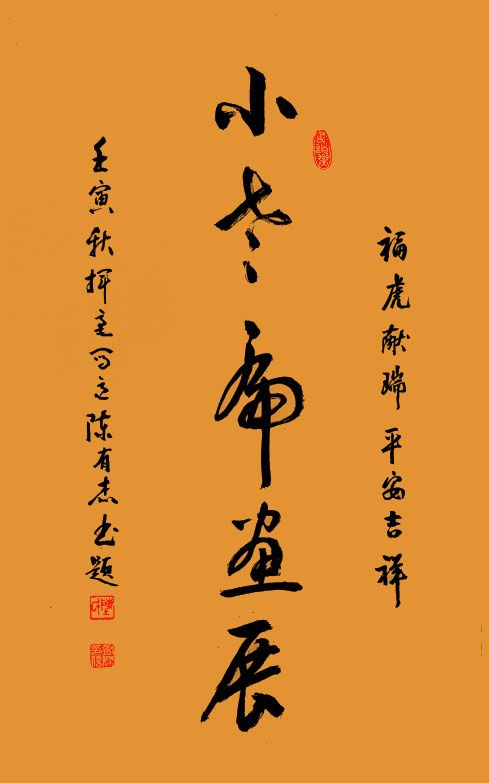 福虎献瑞平安吉祥
小老虎画展
壬寅秋挥毫写意陈有杰书题